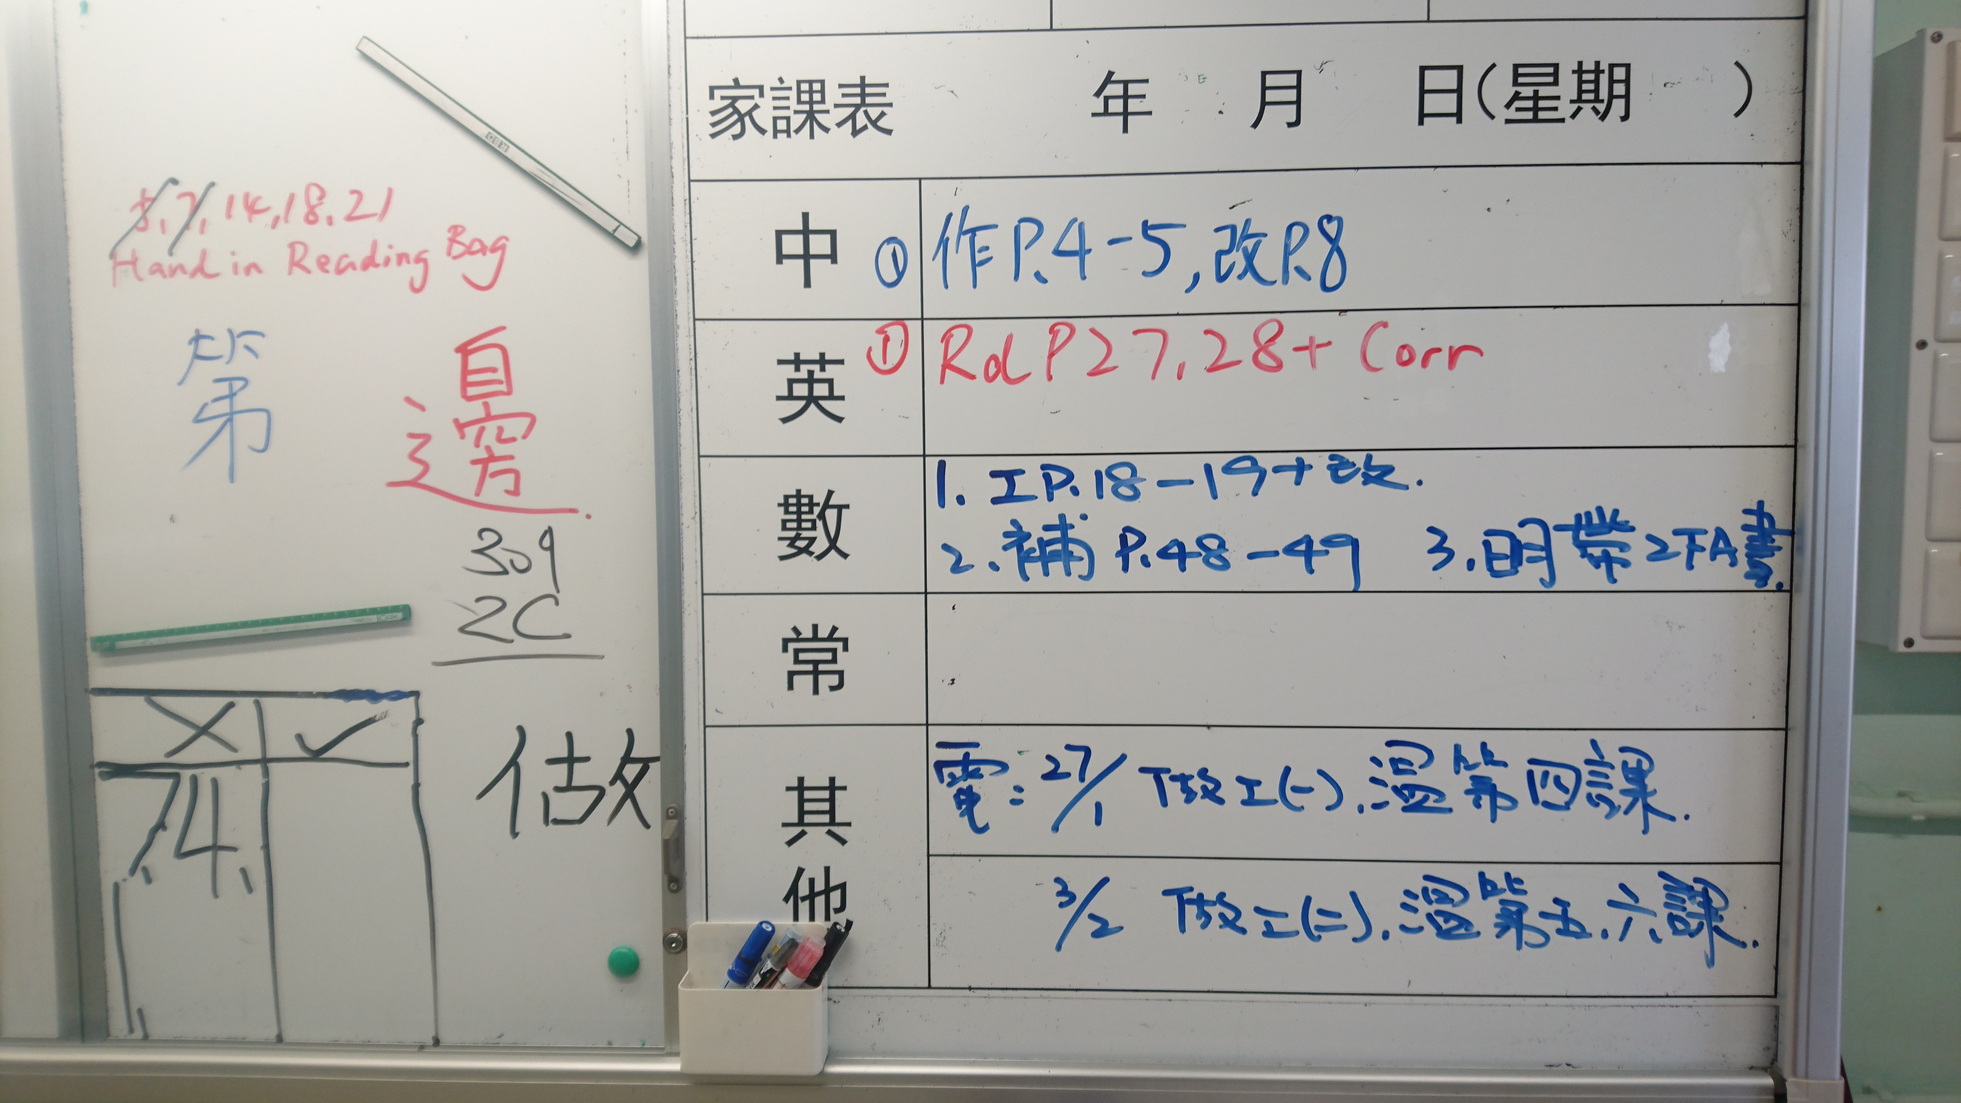 5, 7, 14, 18, 21
Hand in Reading Bag
第
邊
309
2C
74
做
家課表 年 月 日(星期 )
中 ① 作P.4-5, 改P.8
英 ① Rd P27, 28 + Corr
數 1. 工P.18-19+改.
2. 補 P.48-49 3. 明帶2下A書.
常
其他 電: 27/1 下做工(一), 溫第四課.
3/2 下做工(二), 溫第五, 六課.